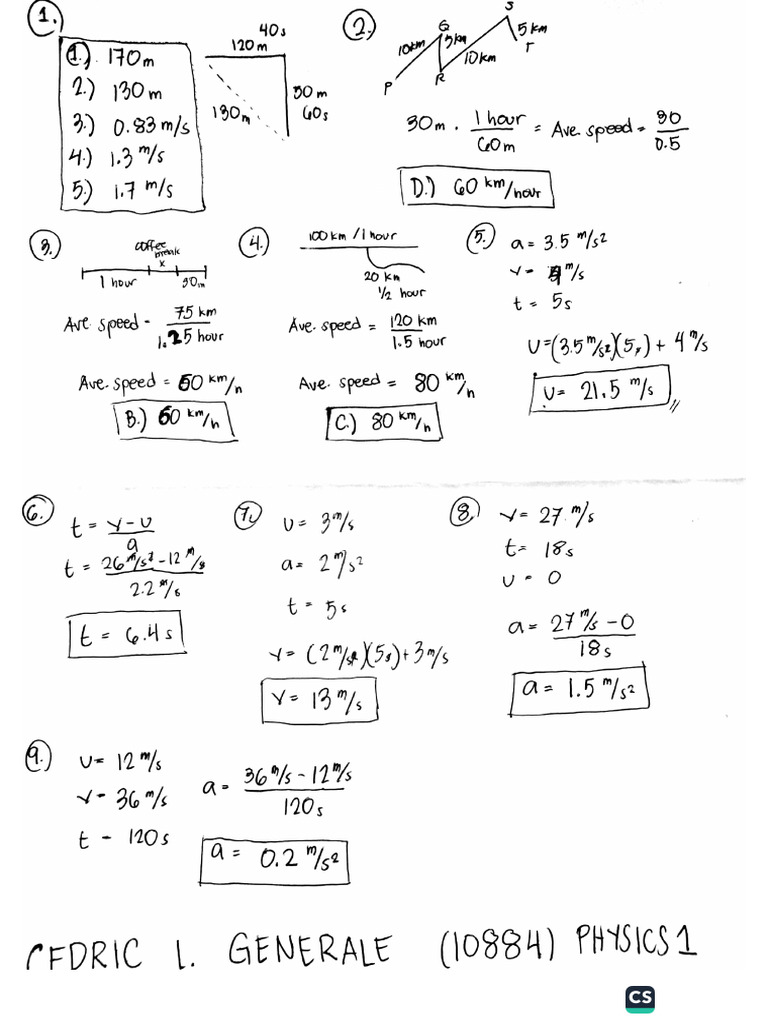 1.
1.) 170m
2.) 130m
3.) 0.83 m/s
4.) 1.3 m/s
5.) 1.7 m/s
40s
120m
50m
60s
130m
2.
Q
S
10km
5km
10km
5km
P
R
T
30m · 1 hour / 60m = Ave speed = 30 / 0.5
D.) 60 km/hour
3.
coffee
break
x
1 hour
30m
Ave speed = 75 km / 1.25 hour
Ave. speed = 60 km/h
B.) 60 km/h
4.
100 km / 1 hour
20 km
1/2 hour
Ave. speed = 120 km / 1.5 hour
Ave. speed = 80 km/h
C.) 80 km/h
5.
a = 3.5 m/s²
v = 4 m/s
t = 5s
U = (3.5 m/s²)(5s) + 4 m/s
U = 21.5 m/s
6.
t = v - u / a
t = 26 m/s² - 12 m/s / 2.2 m/s
t = 6.4 s
7.
u = 3 m/s
a = 2 m/s²
t = 5s
v = (2 m/s²)(5s) + 3 m/s
v = 13 m/s
8.
v = 27 m/s
t = 18s
u = 0
a = 27 m/s - 0 / 18s
a = 1.5 m/s²
9.
u = 12 m/s
v = 36 m/s
t = 120s
a = 36 m/s - 12 m/s / 120s
a = 0.2 m/s²
CEDRIC L. GENERALE (10884) PHYSICS 1
CS